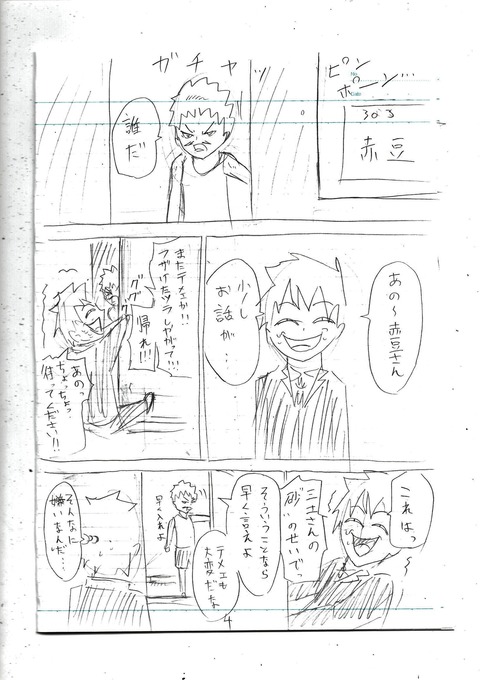 ピン
ポーン…
303
赤豆
ガチャ
誰だ
あの〜赤豆さん
少しお話が…
またテメェか!!
フザけたツラしやがって…!!
帰れ!!!
ググ
あのっ
ちょっちょっ
待ってください!!
これはっ
三土さんの
“砂”のせいでっ
そういうことなら
早く言えよ
テメェも
大変だな
早く入れよ
そんなに
嫌いなんだ…
4